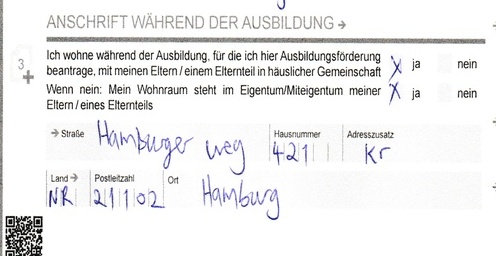 ANSCHRIFT WÄHREND DER AUSBILDUNG →
3 Ich wohne während der Ausbildung, für die ich hier Ausbildungsförderung
beantrage, mit meinen Eltern / einem Elternteil in häuslicher Gemeinschaft X ja nein
Wenn nein: Mein Wohnraum steht im Eigentum/Miteigentum meiner X ja nein
Eltern / eines Elternteils
→ Straße Hamburger weg Hausnummer 421 Adresszusatz Kr
Land → NR Postleitzahl 21102 Ort Hamburg